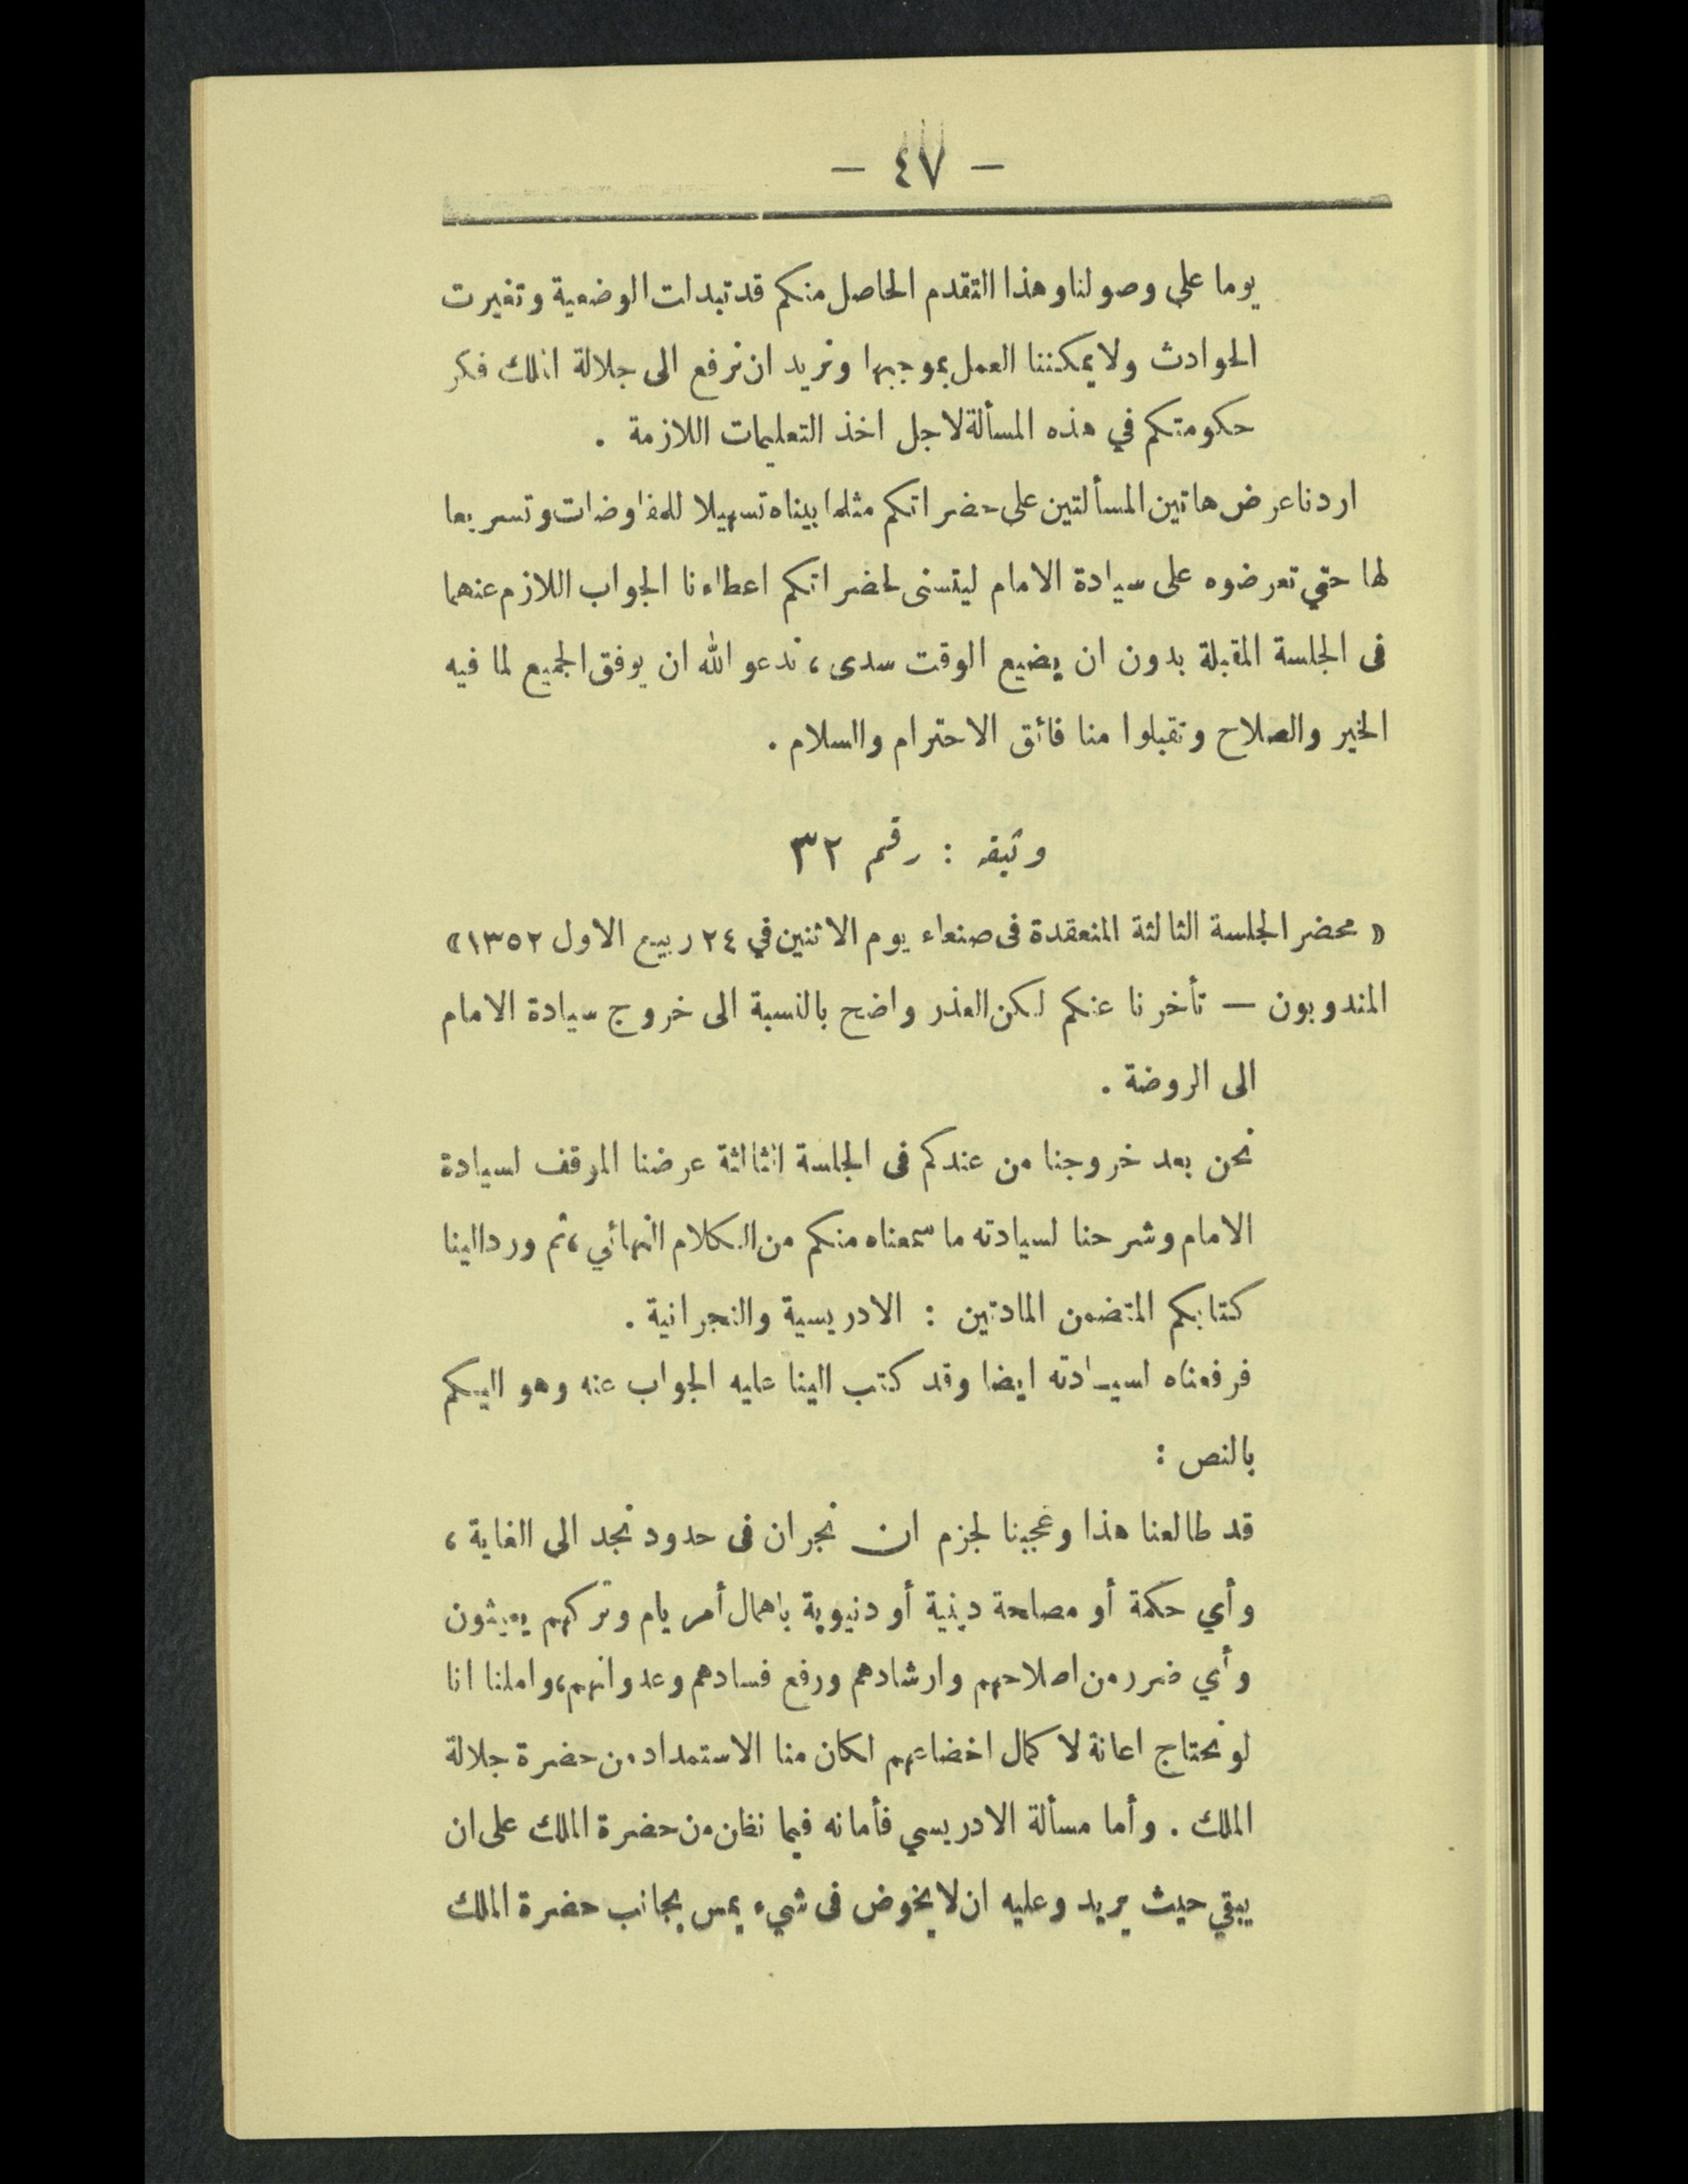 - ٤٧ -
يوما على وصولنا وهذا التقدم الحاصل منكم قد تبدلت الوضعية وتغيرت
الحوادث ولا يمكننا العمل بموجبها ونريد ان نرفع الى جلالة الملك فكر
حكومتكم في هذه المسألة لاجل اخذ التعليمات اللازمة .
اردنا عرض هاتين المسألتين على حضراتكم مثلما بيناه تسهيلا للمفاوضات وتسريعا
لها حتي تعرضوه على سيادة الامام ليتسنى لحضراتكم اعطاءنا الجواب اللازم عنهما
فى الجلسة المقبلة بدون ان يضيع الوقت سدى ، ندعو الله ان يوفق الجميع لما فيه
الخير والصلاح وتقبلوا منا فائق الاحترام والسلام .
وثيقه : رقم ٣٢
« محضر الجلسة الثالثة المنعقدة فى صنعاء يوم الاثنين في ٢٤ ربيع الاول ١٣٥٢ »
المندوبون — تأخرنا عنكم لكن العذر واضح بالنسبة الى خروج سيادة الامام
الى الروضة .
نحن بعد خروجنا من عندكم فى الجلسة الثالثة عرضنا الموقف لسيادة
الامام وشرحنا لسيادته ما سمعناه منكم من الكلام النهائي ، ثم ورد الينا
كتابكم المتضمن المادتين : الادريسية والنجرانية .
فرفعناه لسيادته ايضا وقد كتب الينا عليه الجواب عنه وهو اليكم
بالنص :
قد طالعنا هذا وعجبنا لجزم ان نجران فى حدود نجد الى الغاية ،
وأي حكمة أو مصلحة دينية أو دنيوية باهمال أمر يام وتركهم يعيثون
وأي ضرر من اصلاحهم وارشادهم ورفع فسادهم وعدوانهم ، واملنا انا
لو نحتاج اعانة لا كمال اخضاعهم لكان منا الاستمداد من حضرة جلالة
الملك . وأما مسألة الادريسي فأمانه فيما نظن من حضرة الملك على ان
يبقي حيث يريد وعليه ان لا يخوض فى شيء يمس بجانب حضرة الملك